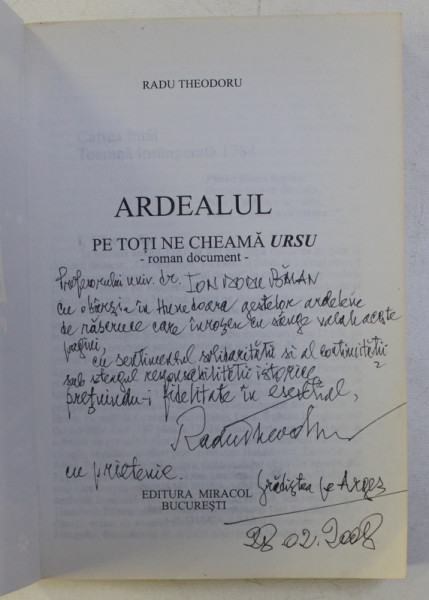 RADU THEODORU
ARDEALUL
PE TOȚI NE CHEAMĂ URSU
- roman document -
Profesorului univ. dr. ION DODU BĂLAN
cu obârșia în Hunedoara gestelor ardelene
de răscruce care înroșesc cu sânge valah aceste
pagini,
cu sentimentul solidarității și al continuității
sub steagul responsabilității istorice,
prețuindu-i fidelitate în esențial,
Radu Theodoru
cu prietenie.
Grădiștea pe Argeș
EDITURA MIRACOL
BUCUREȘTI
28.02.2008